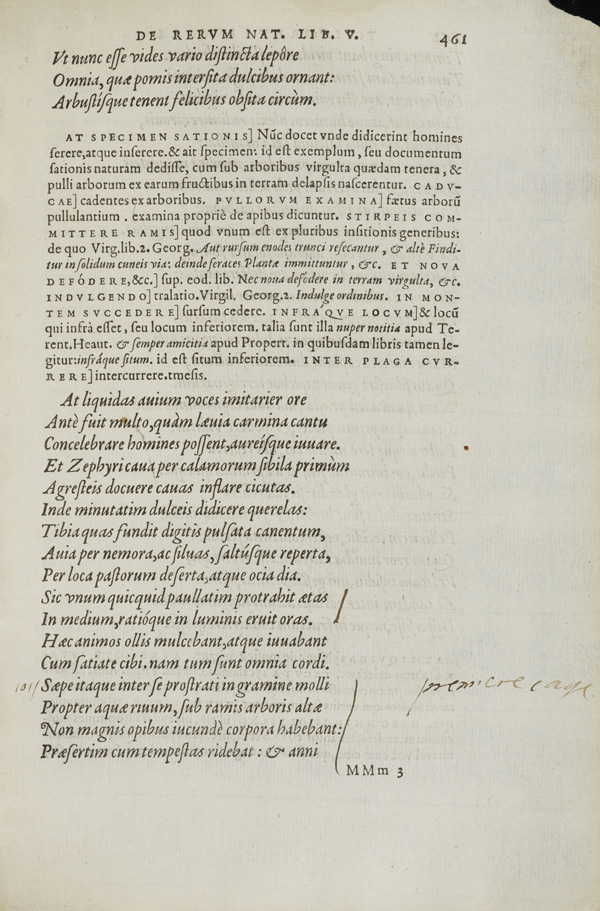 DE RERVM NAT. LIB. V. 461
Vt nunc eſſe vides vario diſtincta lepôre
Omnia, quæ pomis interſita dulcibus ornant:
Arbuſtíſque tenent felicibus obſita circùm.
AT SPECIMEN SATIONIS] Nūc docet vnde didicerint homines
ſerere, atque inſerere. & ait ſpecimen: id eſt exemplum, ſeu documentum
ſationis naturam dediſſe, cum ſub arboribus virgulta quædam tenera, &
pulli arborum ex earum fructibus in terram delapſis naſcerentur. CADV-
CAE] cadentes ex arboribus. PVLLORVM EXAMINA] fætus arborū
pullulantium. examina propriè de apibus dicuntur. STIRPEIS COM-
MITTERE RAMIS] quod vnum eſt ex pluribus inſitionis generibus:
de quo Virg. lib. 2. Georg. Aut rurſum enodes trunci reſecantur, & altè Findi-
tur in ſolidum cuneis via: deinde feraces Plantæ immittuntur, &c. ET NOVA
DEFÓDERE, &c.] ſup. eod. lib. Nec noua defodere in terram virgulta, &c.
INDVLGENDO] tralatio. Virgil. Georg. 2. Indulge ordinibus. IN MON-
TEM SVCCEDERE] ſurſum cedere. INFRA'QVE LOCVM] & locū
qui infrà eſſet, ſeu locum inferiorem. talia ſunt illa nuper notitia apud Te-
rent. Heaut. & ſemper amicitia apud Propert. in quibuſdam libris tamen le-
gitur: infráque ſitum. id est ſitum inferiorem. INTER PLAGA CVR-
RERE] intercurrere. tmeſis.
At liquidas auium voces imitarier ore
Antè fuit multo, quàm læuia carmina cantu
Concelebrare homines poſſent, aureíſque iuuare.
Et Zephyri caua per calamorum ſibila primùm
Agreſteis docuere cauas inflare cicutas.
Inde minutatim dulceis didicere querelas:
Tibia quas fundit digitis pulſata canentum,
Auia per nemora, ac ſiluas, ſaltúſque reperta,
Per loca paſtorum deſerta, atque ocia dia.
Sic vnum quicquid paullatim protrahit ætas
In medium, ratióque in luminis eruit oras.
Hæc animos ollis mulcebant, atque iuuabant
Cum ſatiate cibi. nam tum ſunt omnia cordi.
Sæpe itaque inter ſe proſtrati in gramine molli premiere cage
Propter aquæ riuum, ſub ramis arboris altæ
Non magnis opibus iucundè corpora habebant:
Præſertim cum tempeſtas ridebat: & anni
MMm 3